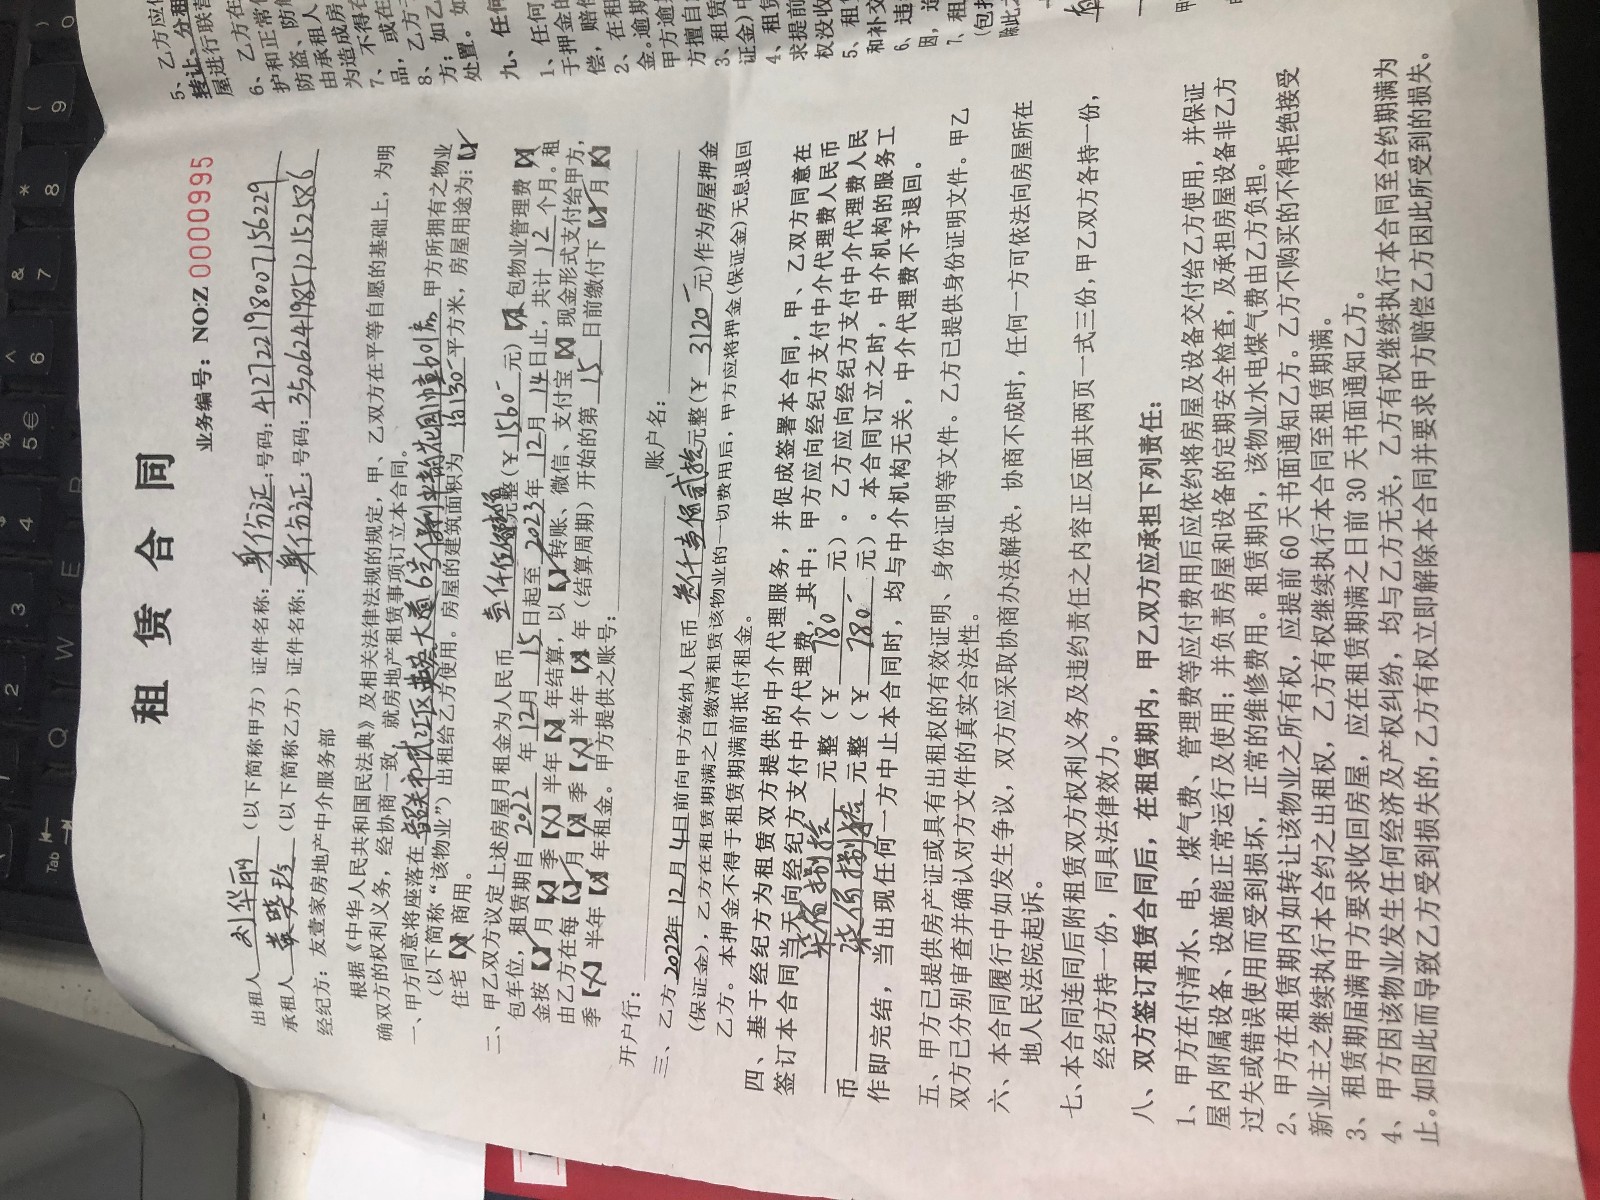 租赁合同
业务编号：NO:Z 0000995
出租人 刘华丽 （以下简称甲方）证件名称：身份证：号码：412722198007156229
承租人 （以下简称乙方）证件名称：身份证：号码：350624198512152586
经纪方：友壹家房地产中介服务部
根据《中华人民共和国民法典》及相关法律法规的规定，甲、乙双方在平等自愿的基础上，为明
确双方的权利义务，经协商一致，就房地产租赁事项订立本合同。
一、甲方同意将座落在 韶关市武江区 大道6号 花园 甲方所拥有之物业
（以下简称“该物业”）出租给乙方使用。房屋的建筑面积为 平方米，房屋用途为：【√】
住宅【×】商用。
二、甲乙双方议定上述房屋月租金为人民币 壹仟伍佰 元整（￥1560元）【×】包物业管理费【×】
包车位，租赁期自 2022 年 12月 15 日起至 2023年 12月 14日止，共计 12 个月。租
金按【√】月【×】季【×】半年【×】年结算，以【√】转账、微信、支付宝【×】现金形式支付给甲方，
由乙方在每【√】月【×】季【×】半年【×】年（结算周期）开始的第 15 日前缴付下【√】月【×】
季【×】半年【×】年租金。甲方提供之账号：
开户行： 账户名：
三、乙方 2022年 12月 4日前向甲方缴纳人民币 叁仟壹佰贰拾元整（￥ 3120 元）作为房屋押金
（保证金），乙方在租赁期满之日缴清租赁该物业的一切费用后，甲方应将押金（保证金）无息退回
乙方。本押金不得于租赁期满前抵付租金。
四、基于经纪方为租赁双方提供的中介代理服务，并促成签署本合同，甲、乙双方同意在
签订本合同当天向经纪方支付中介代理费，其中：甲方应向经纪方支付中介代理费人民币
柒佰捌拾 元整（￥ 780 元）。乙方应向经纪方支付中介代理费人民
币 柒佰捌拾 元整（￥ 780 元）。本合同订立之时，中介机构的服务工
作即完结，当出现任何一方中止本合同时，均与中介机构无关，中介代理费不予退回。
五、甲方已提供房产证或具有出租权的有效证明、身份证明等文件。乙方已提供身份证明文件。甲乙
双方已分别审查并确认对方文件的真实合法性。
六、本合同履行中如发生争议，双方应采取协商办法解决，协商不成时，任何一方可依法向房屋所在
地人民法院起诉。
七、本合同连同后附租赁双方权利义务及违约责任之内容正反面共两页一式三份，甲乙双方各持一份，
经纪方持一份，同具法律效力。
八、双方签订租赁合同后，在租赁期内，甲乙双方应承担下列责任：
1、甲方在付清水、电、煤气费、管理费等应付费用后应依约将房屋及设备交付给乙方使用，并保证
屋内附属设备、设施能正常运行及使用；并负责房屋和设备的定期安全检查，及承担房屋设备非乙方
过失或错误使用而受到损坏，正常的维修费用。租赁期内，该物业水电煤气费由乙方负担。
2、甲方在租赁期内如转让该物业之所有权，应提前 60 天书面通知乙方。乙方不购买的不得拒绝接受
新业主之继续执行本合约之出租权，乙方有权继续执行本合同至租赁期满。
3、租赁期届满甲方要求收回房屋，应在租赁期满之日前 30 天书面通知乙方。
4、甲方因该物业发生任何经济及产权纠纷，均与乙方无关，乙方有权继续执行本合同至合约期满为
止。如因此而导致乙方受到损失的，乙方有权立即解除本合同并要求甲方赔偿乙方因此所受到的损失。
5、乙方应
转让、分租
屋进行联营
6、乙方在
护和正常
防盗、防
由承租人
为造成房
7、不得
品，或在
8、乙方
方；如乙
处置。如
九、任何
1、任何
于押金的
偿，赔
2、在租
金。逾期
甲方逾
方擅自
3、租赁
证金）
4、租
求提前
权没收
5、租
和补交
6、违
因，
7、租
（包
Tab
Q
W
E
R
2
3
4
5
%
€
6
^
7
&
8
*
9
(